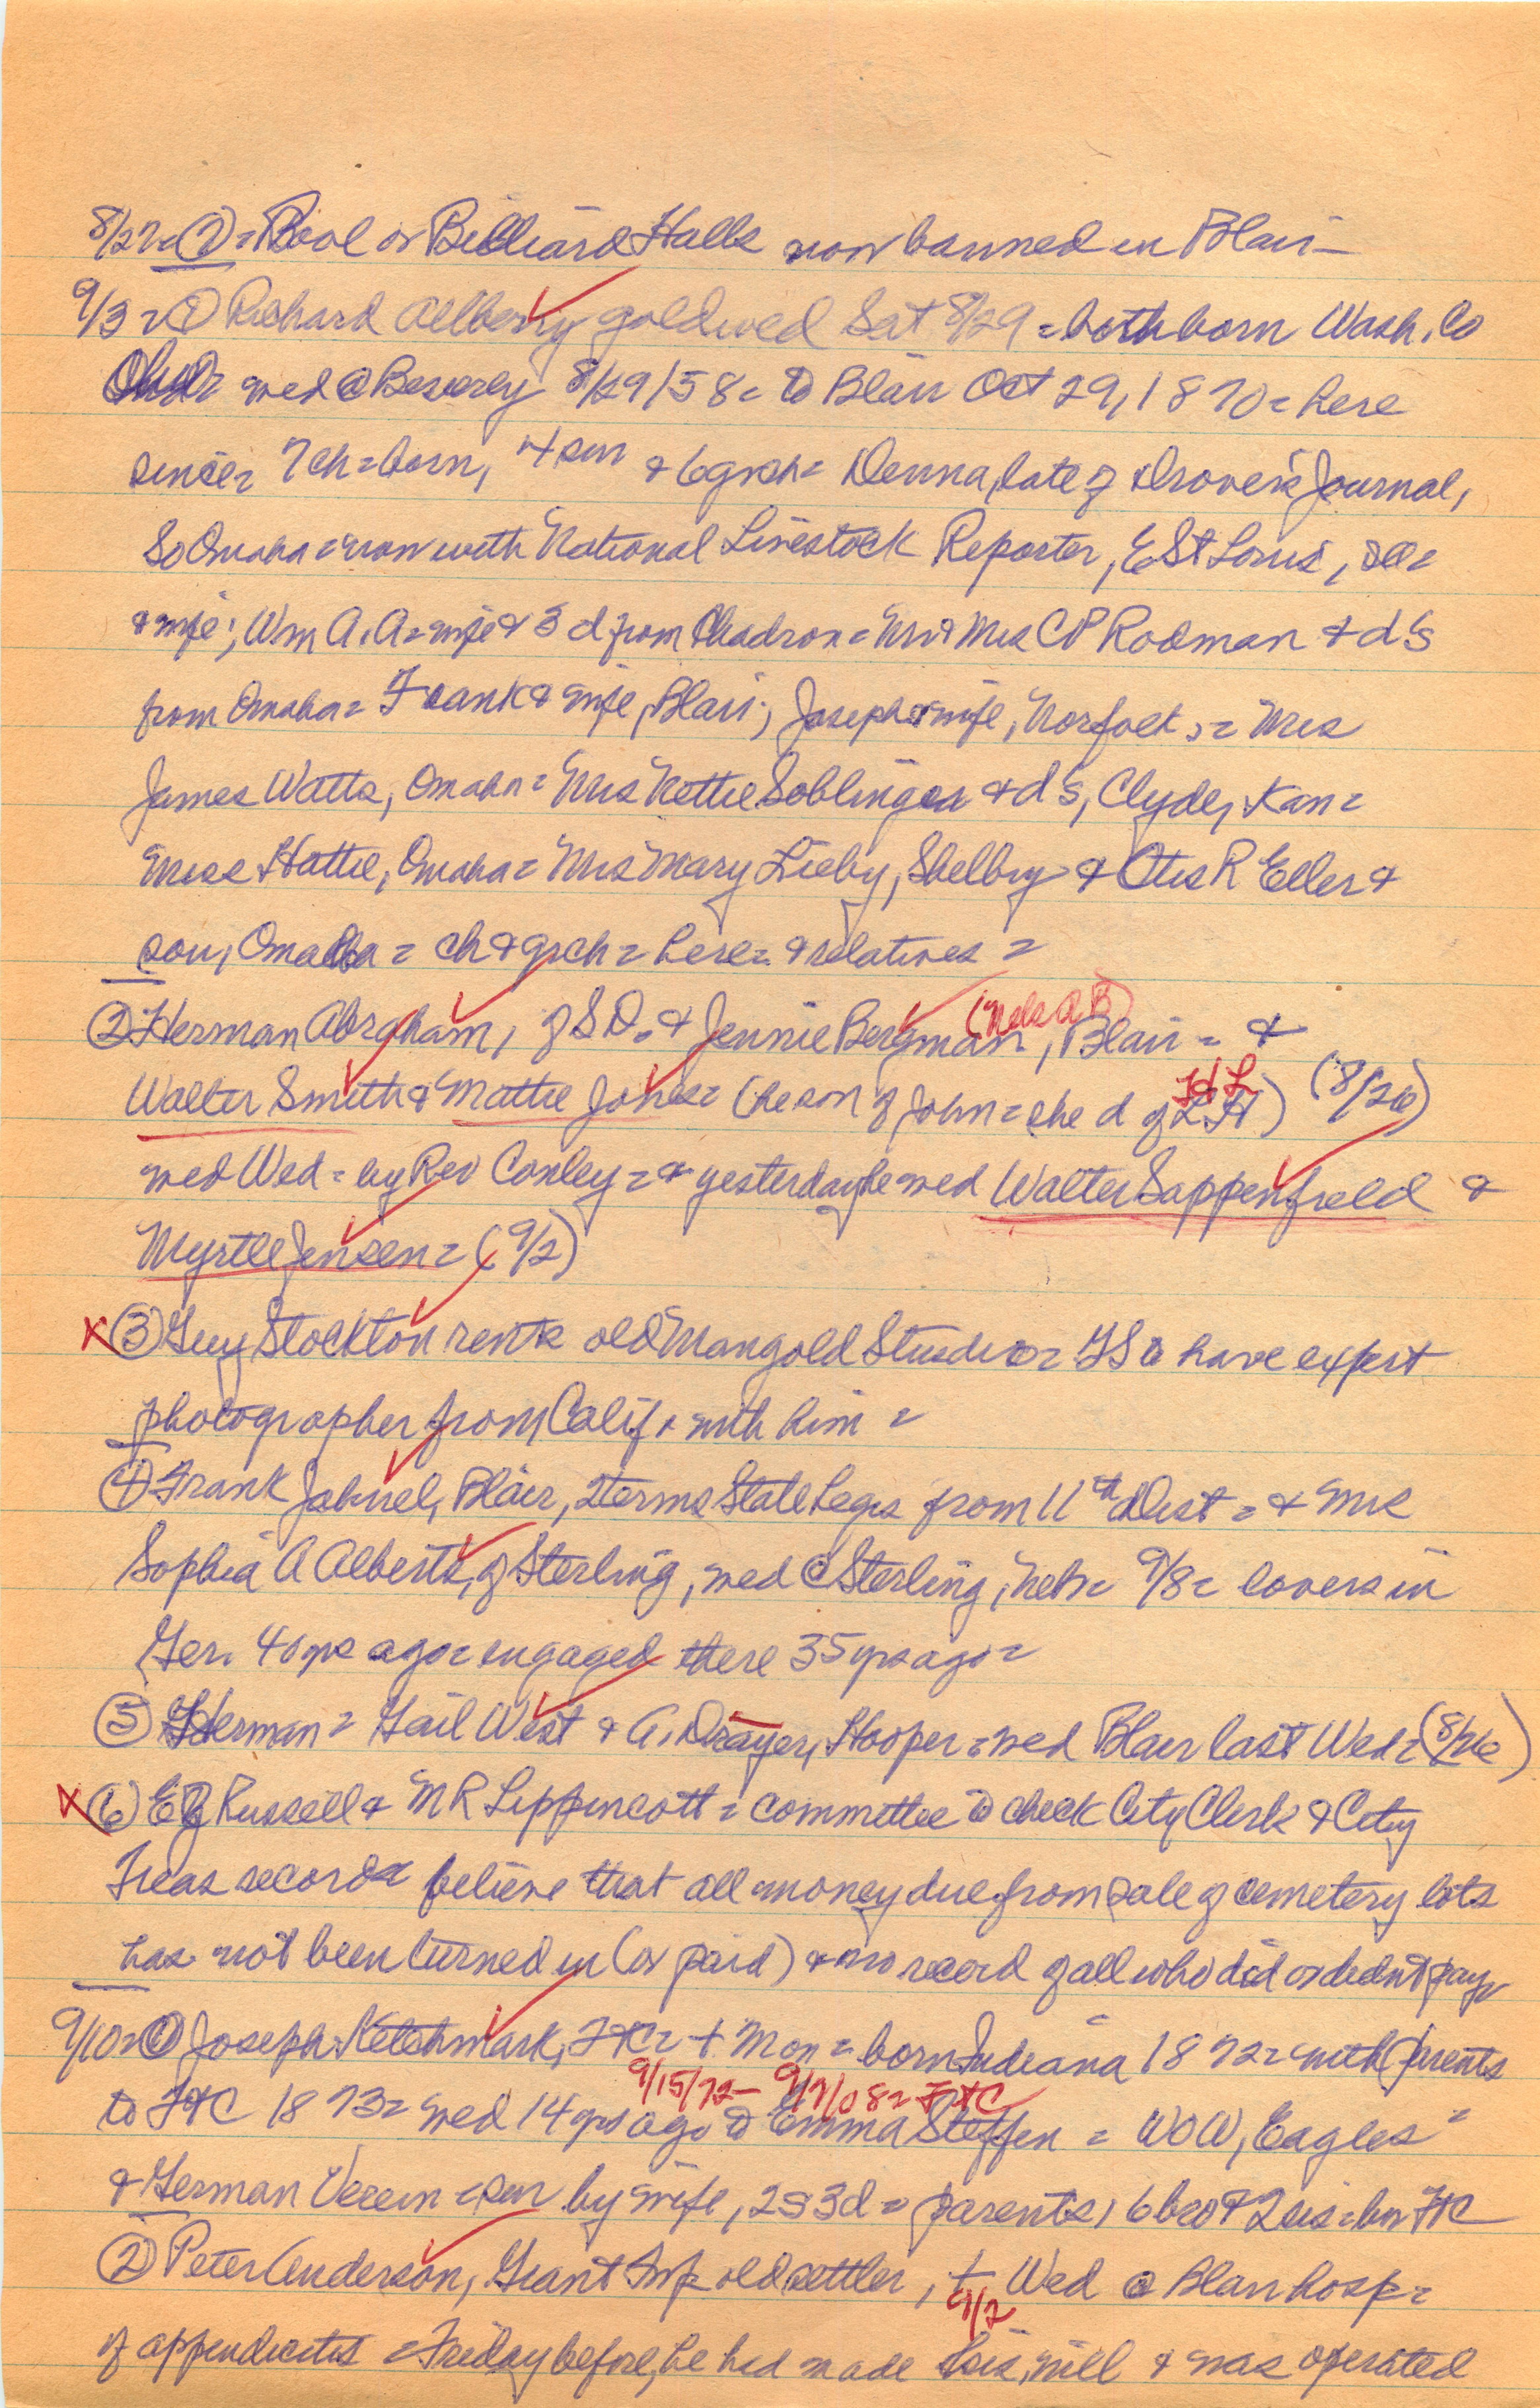 8/27= (7)= Pool or Billiard Halls now banned in Blair—
9/3= (1) Richard Allberry goldwed Sat 8/29 = both born Wash. Co
Ohio= wed @ Beverly 8/29/58= to Blair Oct 29, 1870= here
since= 7 ch= born, 4 sur & 6 grch= Denna, late of Drover's Journal,
So Omaha = now with National Livestock Reporter, E St Louis, Ill=
& wife; Wm A. A= wife & 3 d from Chadron= Mr & Mrs CP Rodman & d's
from Omaha= Frank & wife, Blair; Joseph & wife, Norfolk;= Mrs
James Watts, Omaha= Mrs Nettie Soblinger & d's, Clyde, Kan=
Miss Hattie, Omaha= Mrs Mary Lieby, Shelby & Otis R Eller &
son, Omaha= ch & grch= here= & relatives=
(2) Herman Abraham, of S D. & Jennie Bergman, (Nels A B) Blair= &
Walter Smith & Mattie Jones= (he son of John= she d of L H) (8/26)
wed Wed= by Rev Conley= & yesterday he wed Walter Sappenfield &
Myrtle Jensen= (9/2)
x (3) Guy Stockton rents old Mangold Studio= GS to have expert
photographer from Calif. with him=
(4) Frank Jahnel, Blair, 2 terms State Legis from 11th Dist= & Mrs
Sophia A Alberts, of Sterling, wed @ Sterling, Neb= 9/8= lovers in
Ger. 40 yrs ago= engaged there 35 yrs ago=
(5) Herman= Gail West & A. Drayer, Hooper= wed Blair last Wed= (8/26)
x (6) Russell & M R Lippincott= committee to check City Clerk & City
Treas records believe that all money due from sale of cemetery lots
has not been turned in (or paid) & no record of all who did or didn't pay
9/10= (1) Joseph Ketchmark, FtC= + Mon= born Indiana 1872= with parents
9/15/72— 9/7/08= FtC
to FtC 1873= wed 14 yrs ago to Emma Steffen= WOW, Eagles=
& German Verein= sur by wife, 2 s 3 d= parents, 6 bro & 2 sis= bur FtC
(2) Peter Anderson, Grant Twp old settler, + Wed @ Blair hosp=
9/2
of appendicitis= Friday before, he had made his will & was operated